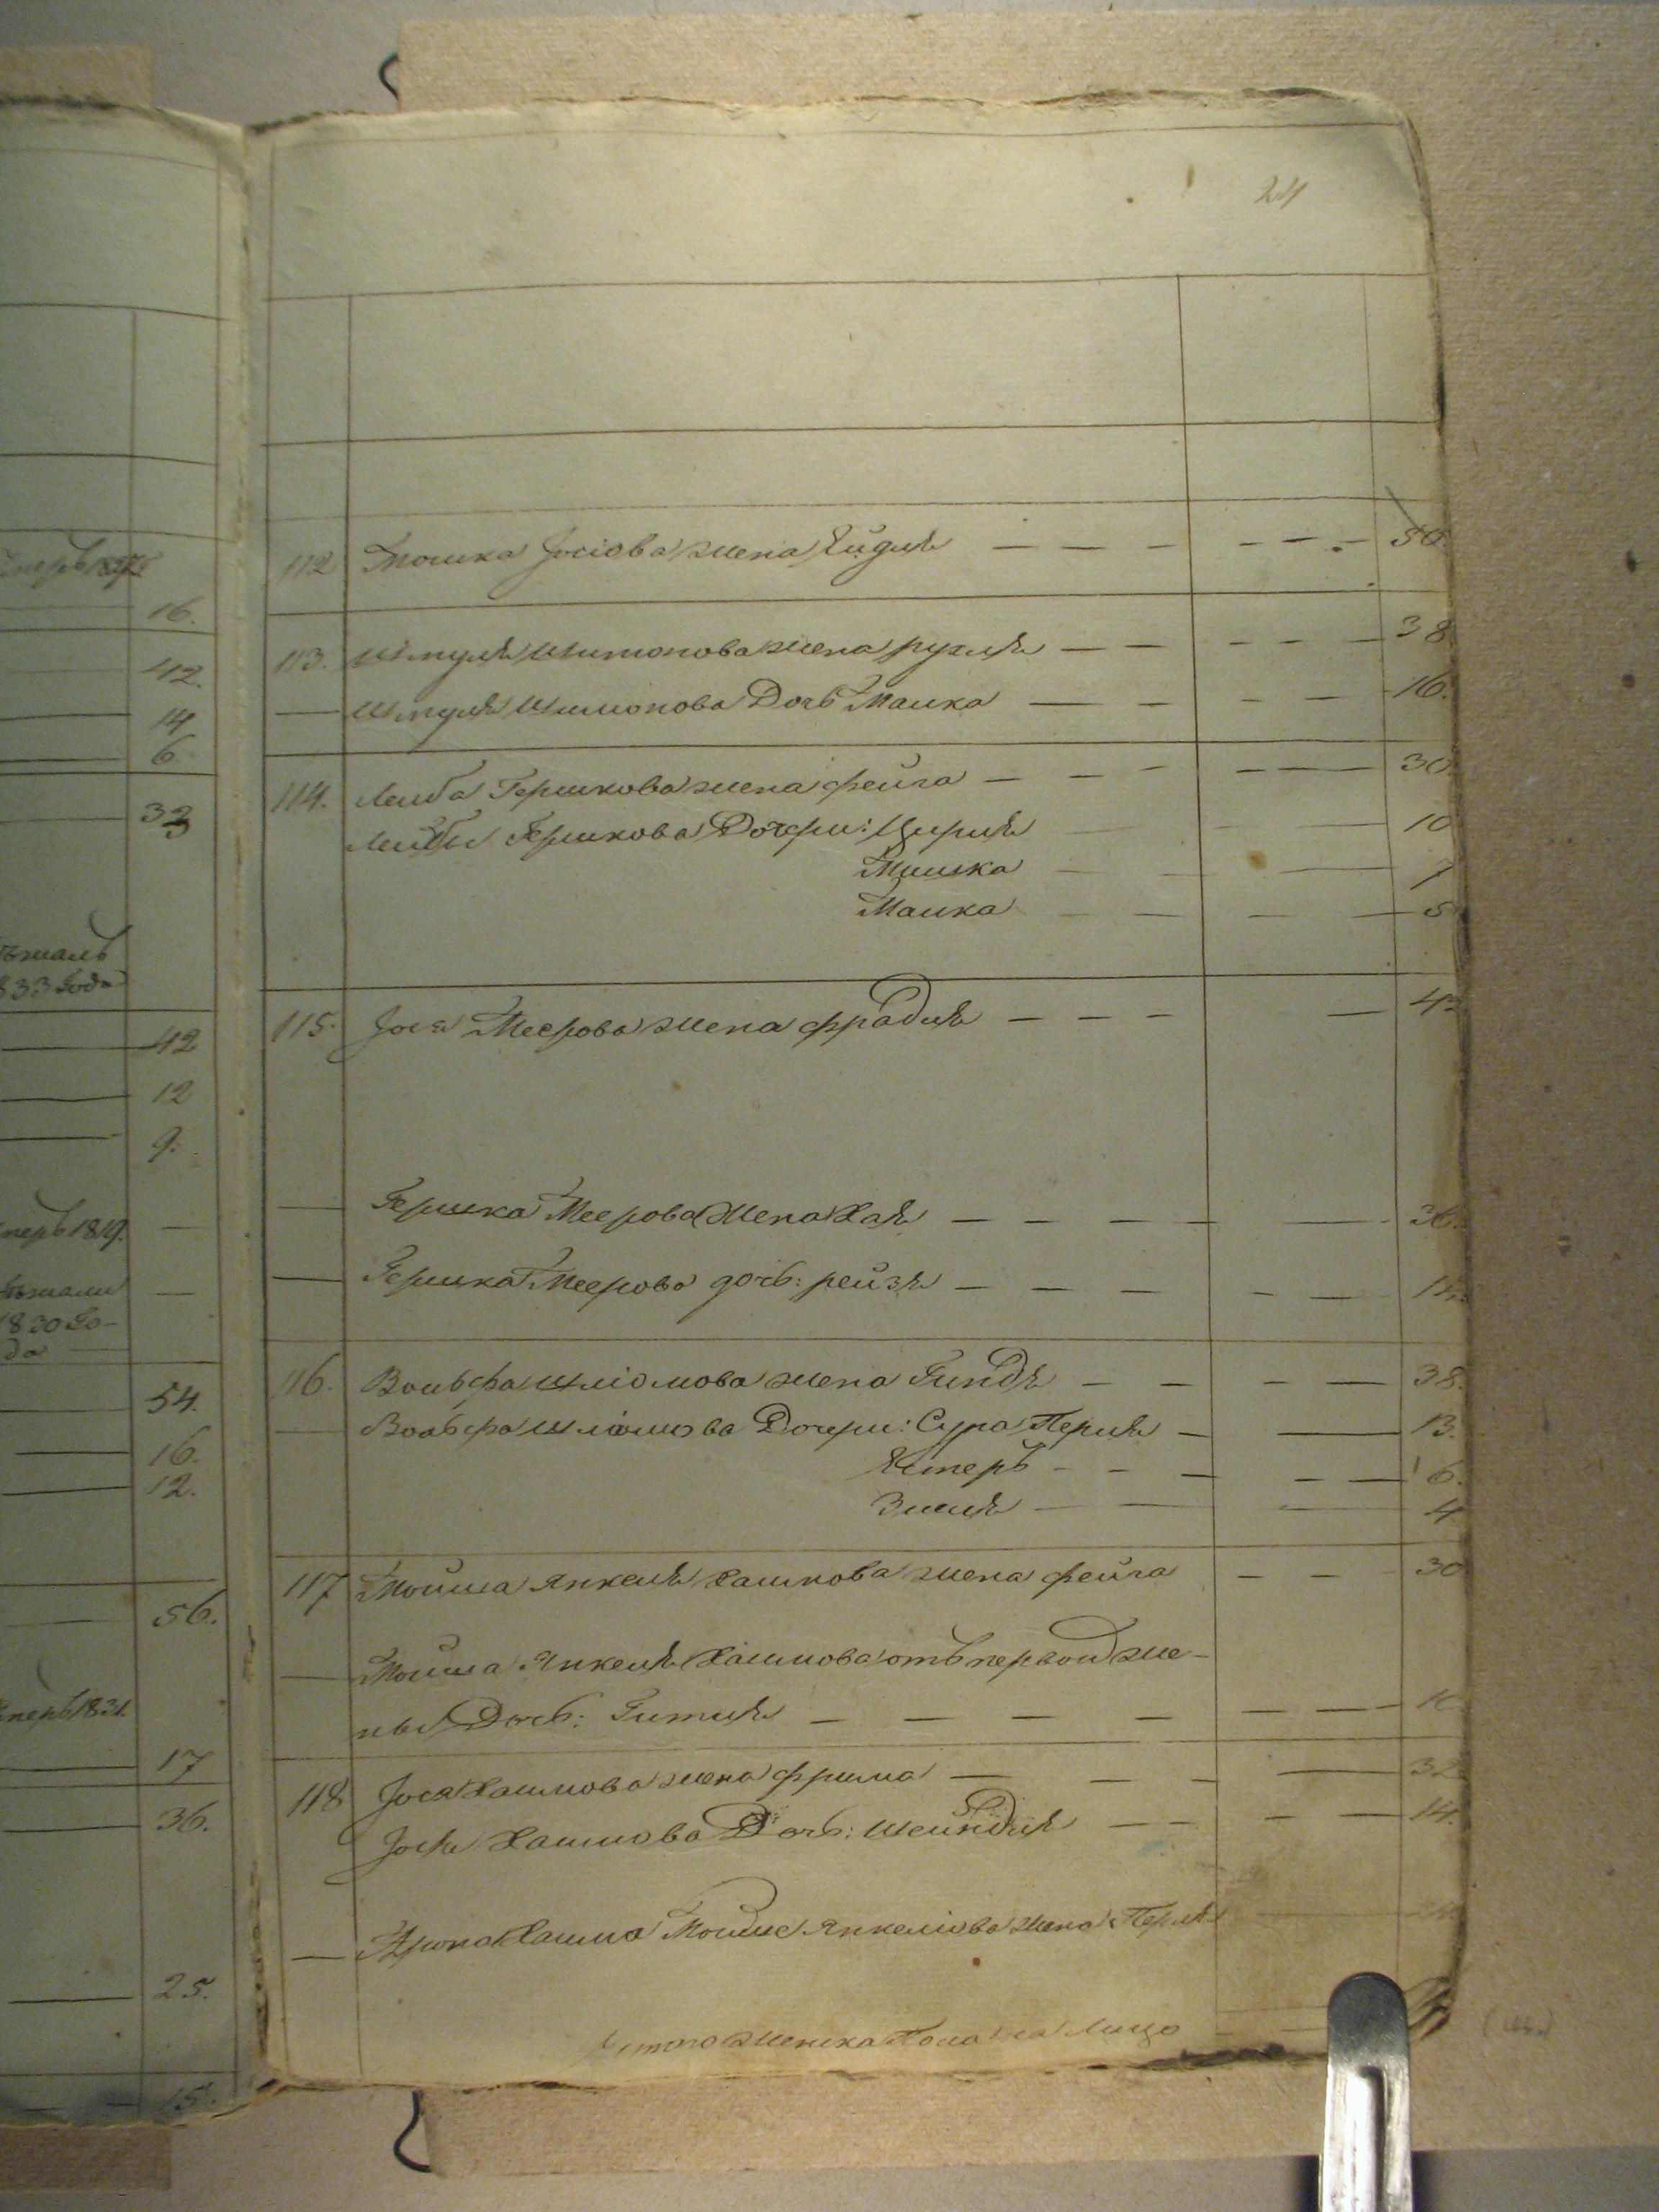 24
112 Мошка Іосіова жена Ейдля — — — — — — 50.
113. Шмуля Шимонова жена рухля — — — — — 38
— Шмуля Шимонова Дочь Малка — — — — — 16.
114. Лейба Гершкова жена фейга — — — — — — 30.
Лейбы Гершкова Дочери: Цирля — — 10
Минка — — — 7
Малка — — — — 5
115. Іося Меерова жена фрадля — — — — 42
— Гершка Меерова Жена Хая — — — — — 36.
— Гершка Меерова дочь: рейзя — — — — —
116. Вольфа Шліомова жена Гиндя — — — — 38.
— Вольфа Шліомова Дочери: Сура Перля — — 13.
Естерь — — — — — 6.
Зисля — — — 4
117 Мойша Янкеля Хаимова жена фейга — — 30
— Мойша Янкеля Хаимова отъ первой же-
ны Дочь: Гитля — — — — — — — 10
118 Іося Хаимова жена фрима — — — — 32
Іося Хаимова Дочь: Шейндля — — — — 14.
— Хаима Мойше Янкеліова жена Перля —
Итого женска Пола на Лицо
16.
42.
14
6.
33
833 Года
42
12
9.
1819. —
—
1830 Го-
да —
54.
16.
12.
56.
1831.
17
36.
25.
15.